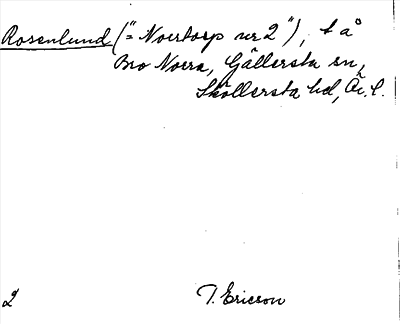 Rosenlund (="Norrtorp nr 2"), t å
Bro Norra, Gällersta sn,
Sköllersta hd, Är. l.
2
T. Ericson